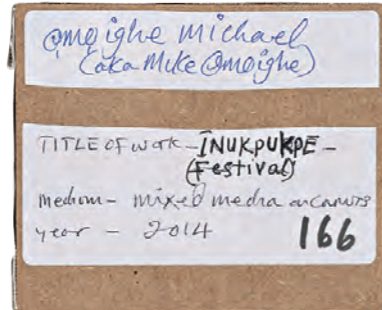 Omoighe Michael
(aka Mike Omoighe)
TITLE OF work - INUKPUKPE -
(Festival)
medium - mixed media on canvas
year - 2014
166